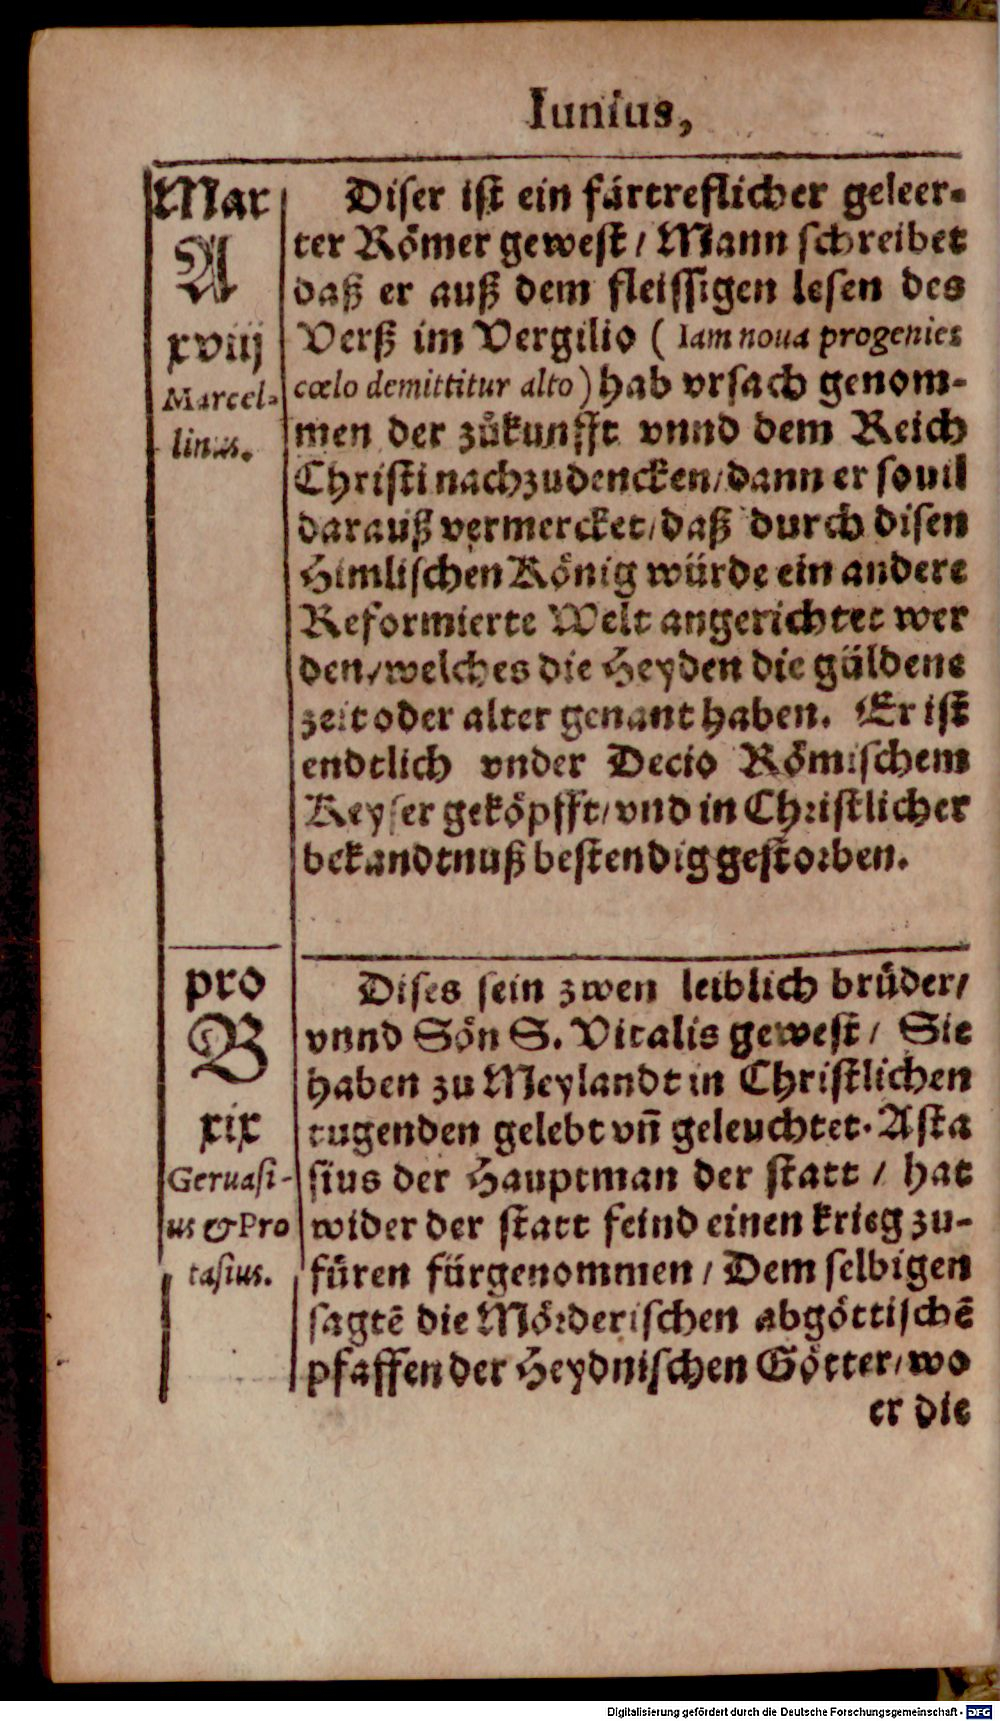 Iunius,
Mar
A
xviij
Marcel-
linus.
Diser ist ein färtreflicher geleer-
ter Römer gewest / Mann schreibet
daß er auß dem fleissigen lesen des
Verß im Vergilio ( Iam noua progenies
cœlo demittitur alto ) hab vrsach genom-
men der zůkunfft vnnd dem Reich
Christi nachzudencken / dann er souil
darauß vermercket / daß durch disen
Himlischen König würde ein andere
Reformierte Welt angerichtet wer
den / welches die Heyden die güldene
zeit oder alter genant haben. Er ist
endtlich vnder Decio Römischem
Keyser geköpfft / vnd in Christlicher
bekandtnuß bestendig gestorben.
pro
B
xix
Geruasi-
us & Pro
tasius.
Dises sein zwen leiblich brůder /
vnnd Sön S. Vitalis gewest / Sie
haben zu Meylandt in Christlichen
tugenden gelebt vn̄ geleuchtet. Asta
sius der Hauptman der statt / hat
wider der statt feind einen krieg zu-
füren fürgenommen / Dem selbigen
sagtē die Mörderischen abgöttischē
pfaffen der Heydnischen Götter / wo
er die
Digitalisierung gefördert durch die Deutsche Forschungsgemeinschaft - DFG